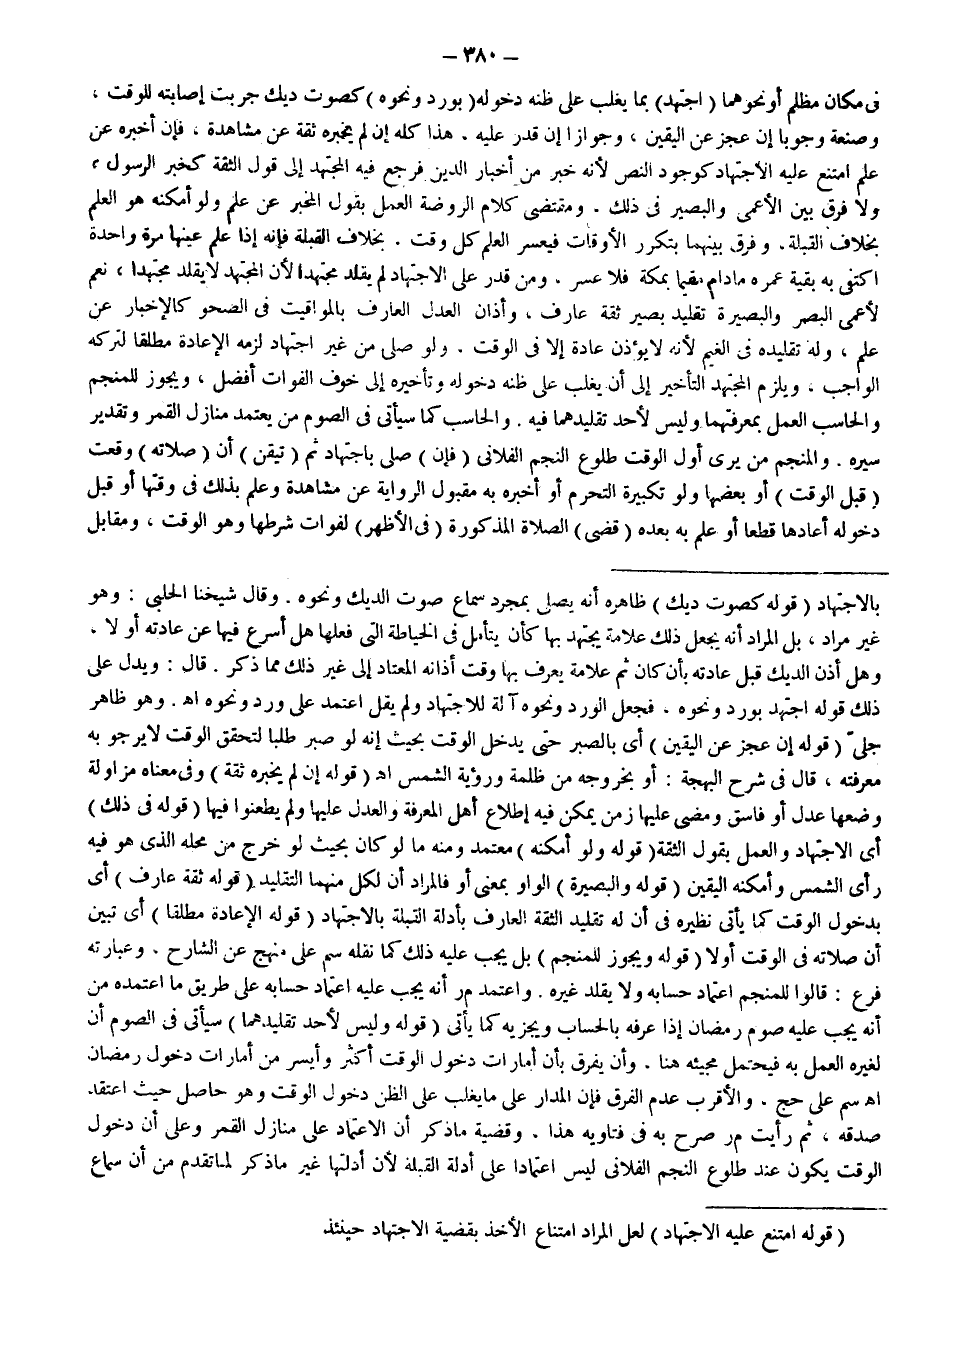 – ٣٨٠ –
فى مكان مظلم أونحوهما ( اجتهد) بما يغلب على ظنه دخوله( بورد ونحوه )كصوت ديك جربت إصابته للوقت ،
وصنعة وجوبا إن عجز عن اليقين ، وجوازا إن قدر عليه . هذا كله إن لم يخبره ثقة عن مشاهدة ، فإن أخبره عن
علم امتنع عليه الاجتهادكوجود النص لأنه خبر من أخبار الدين فرجع فيه المجتهد إلى قول الثقة كخبر الرسول ،
ولا فرق بين الأعمى والبصير فى ذلك . ومقتضى كلام الروضة العمل بقول المخبر عن علم ولو أمكنه هو العلم
بخلاف القبلة. وفرق بينهما بتكرر الأوقات فيعسر العلم كل وقت . بخلاف القبلة فإنه إذا علم عينها مرة واحدة
اكتفى به بقية عمره مادام مقيما بمكة فلا عسر . ومن قدر على الاجتهاد لم يقلد مجتهدا لأن المجتهد لايقلد مجتهدا ، نعم
لأعمى البصر والبصيرة تقليد بصير ثقة عارف ، وأذان العدل العارف بالمواقيت فى الصحو كالإخبار عن
علم ، وله تقليده فى الغيم لأنه لايؤذن عادة إلا فى الوقت . ولو صلى من غير اجتهاد لزمه الإعادة مطلقا لتركه
الواجب ، ويلزم المجتهد التأخير إلى أن يغلب على ظنه دخوله وتأخيره إلى خوف الفوات أفضل ، ويجوز للمنجم
والحاسب العمل بمعرفتهما وليس لأحد تقليدهما فيه . والحاسب كما سيأتى فى الصوم من يعتمد منازل القمر وتقدير
سيره . والمنجم من يرى أول الوقت طلوع النجم الفلانى ( فإن ) صلى باجتهاد ثم ( تيقن ) أن ( صلاته ) وقعت
( قبل الوقت ) أو بعضها ولو تكبيرة التحرم أو أخبره به مقبول الرواية عن مشاهدة وعلم بذلك فى وقتها أو قبل
دخوله أعادها قطعا أو علم به بعده ( قضى) الصلاة المذكورة ( فى الأظهر) لفوات شرطها وهو الوقت ، ومقابل
بالاجتهاد ( قوله كصوت ديك ) ظاهره أنه يصلى بمجرد سماع صوت الديك ونحوه . وقال شيخنا الحلبى : وهو
غير مراد ، بل المراد أنه يجعل ذلك علامة يجتهد بها كأن يتأمل فى الخياطة التى فعلها هل أسرع فيها عن عادته أو لا .
وهل أذن الديك قبل عادته بأن كان ثم علامة يعرف بها وقت أذانه المعتاد إلى غير ذلك مما ذكر . قال : ويدل على
ذلك قوله اجتهد بورد ونحوه . فجعل الورد ونحوه آلة للاجتهاد ولم يقل اعتمد على ورد ونحوه اهـ . وهو ظاهر
جلىّ ( قوله إن عجز عن اليقين ) أى بالصبر حتى يدخل الوقت بحيث إنه لو صبر طلبا لتحقق الوقت لايرجو به
معرفته ، قال فى شرح البهجة : أو بخروجه من ظلمة ورؤية الشمس اهـ ( قوله إن لم يخبره ثقة ) وفى معناه مزاولة
وضعها عدل أو فاسق ومضى عليها زمن يمكن فيه إطلاع أهل المعرفة والعدل عليها ولم يطعنوا فيها ( قوله فى ذلك )
أى الاجتهاد والعمل بقول الثقة( قوله ولو أمكنه )معتمد ومنه ما لو كان بحيث لو خرج من محله الذى هو فيه
رأى الشمس وأمكنه اليقين ( قوله والبصيرة ) الواو بمعنى أو فالمراد أن لكل منهما التقليد ( قوله ثقة عارف ) أى
بدخول الوقت كما يأتى نظيره فى أن له تقليد الثقة العارف بأدلة القبلة بالاجتهاد ( قوله الإعادة مطلقا ) أى تبين
أن صلاته فى الوقت أولا ( قوله ويجوز للمنجم ) بل يجب عليه ذلك كما نقله سم على منهج عن الشارح . وعبارته
فرع : قالوا للمنجم اعتماد حسابه ولا يقلد غيره . واعتمد مر أنه يجب عليه اعتماد حسابه على طريق ما اعتمده من
أنه يجب عليه صوم رمضان إذا عرفه بالحساب ويجزيه كما يأتى ( قوله وليس لأحد تقليدهما ) سيأتى فى الصوم أن
لغيره العمل به فيحتمل مجيئه هنا . وأن يفرق بأن أمارات دخول الوقت أكثر وأيسر من أمارات دخول رمضان
اهـ سم على حج . والأقرب عدم الفرق فإن المدار على مايغلب على الظن دخول الوقت وهو حاصل حيث اعتقد
صدقه ، ثم رأيت مر صرح به فى فتاويه هذا . وقضية ماذكر أن الاعتماد على منازل القمر وعلى أن دخول
الوقت يكون عند طلوع النجم الفلانى ليس اعتمادا على أدلة القبلة لأن أدلتها غير ماذكر لماتقدم من أن سماع
( قوله امتنع عليه الاجتهاد ) لعل المراد امتناع الأخذ بقضية الاجتهاد حينئذ